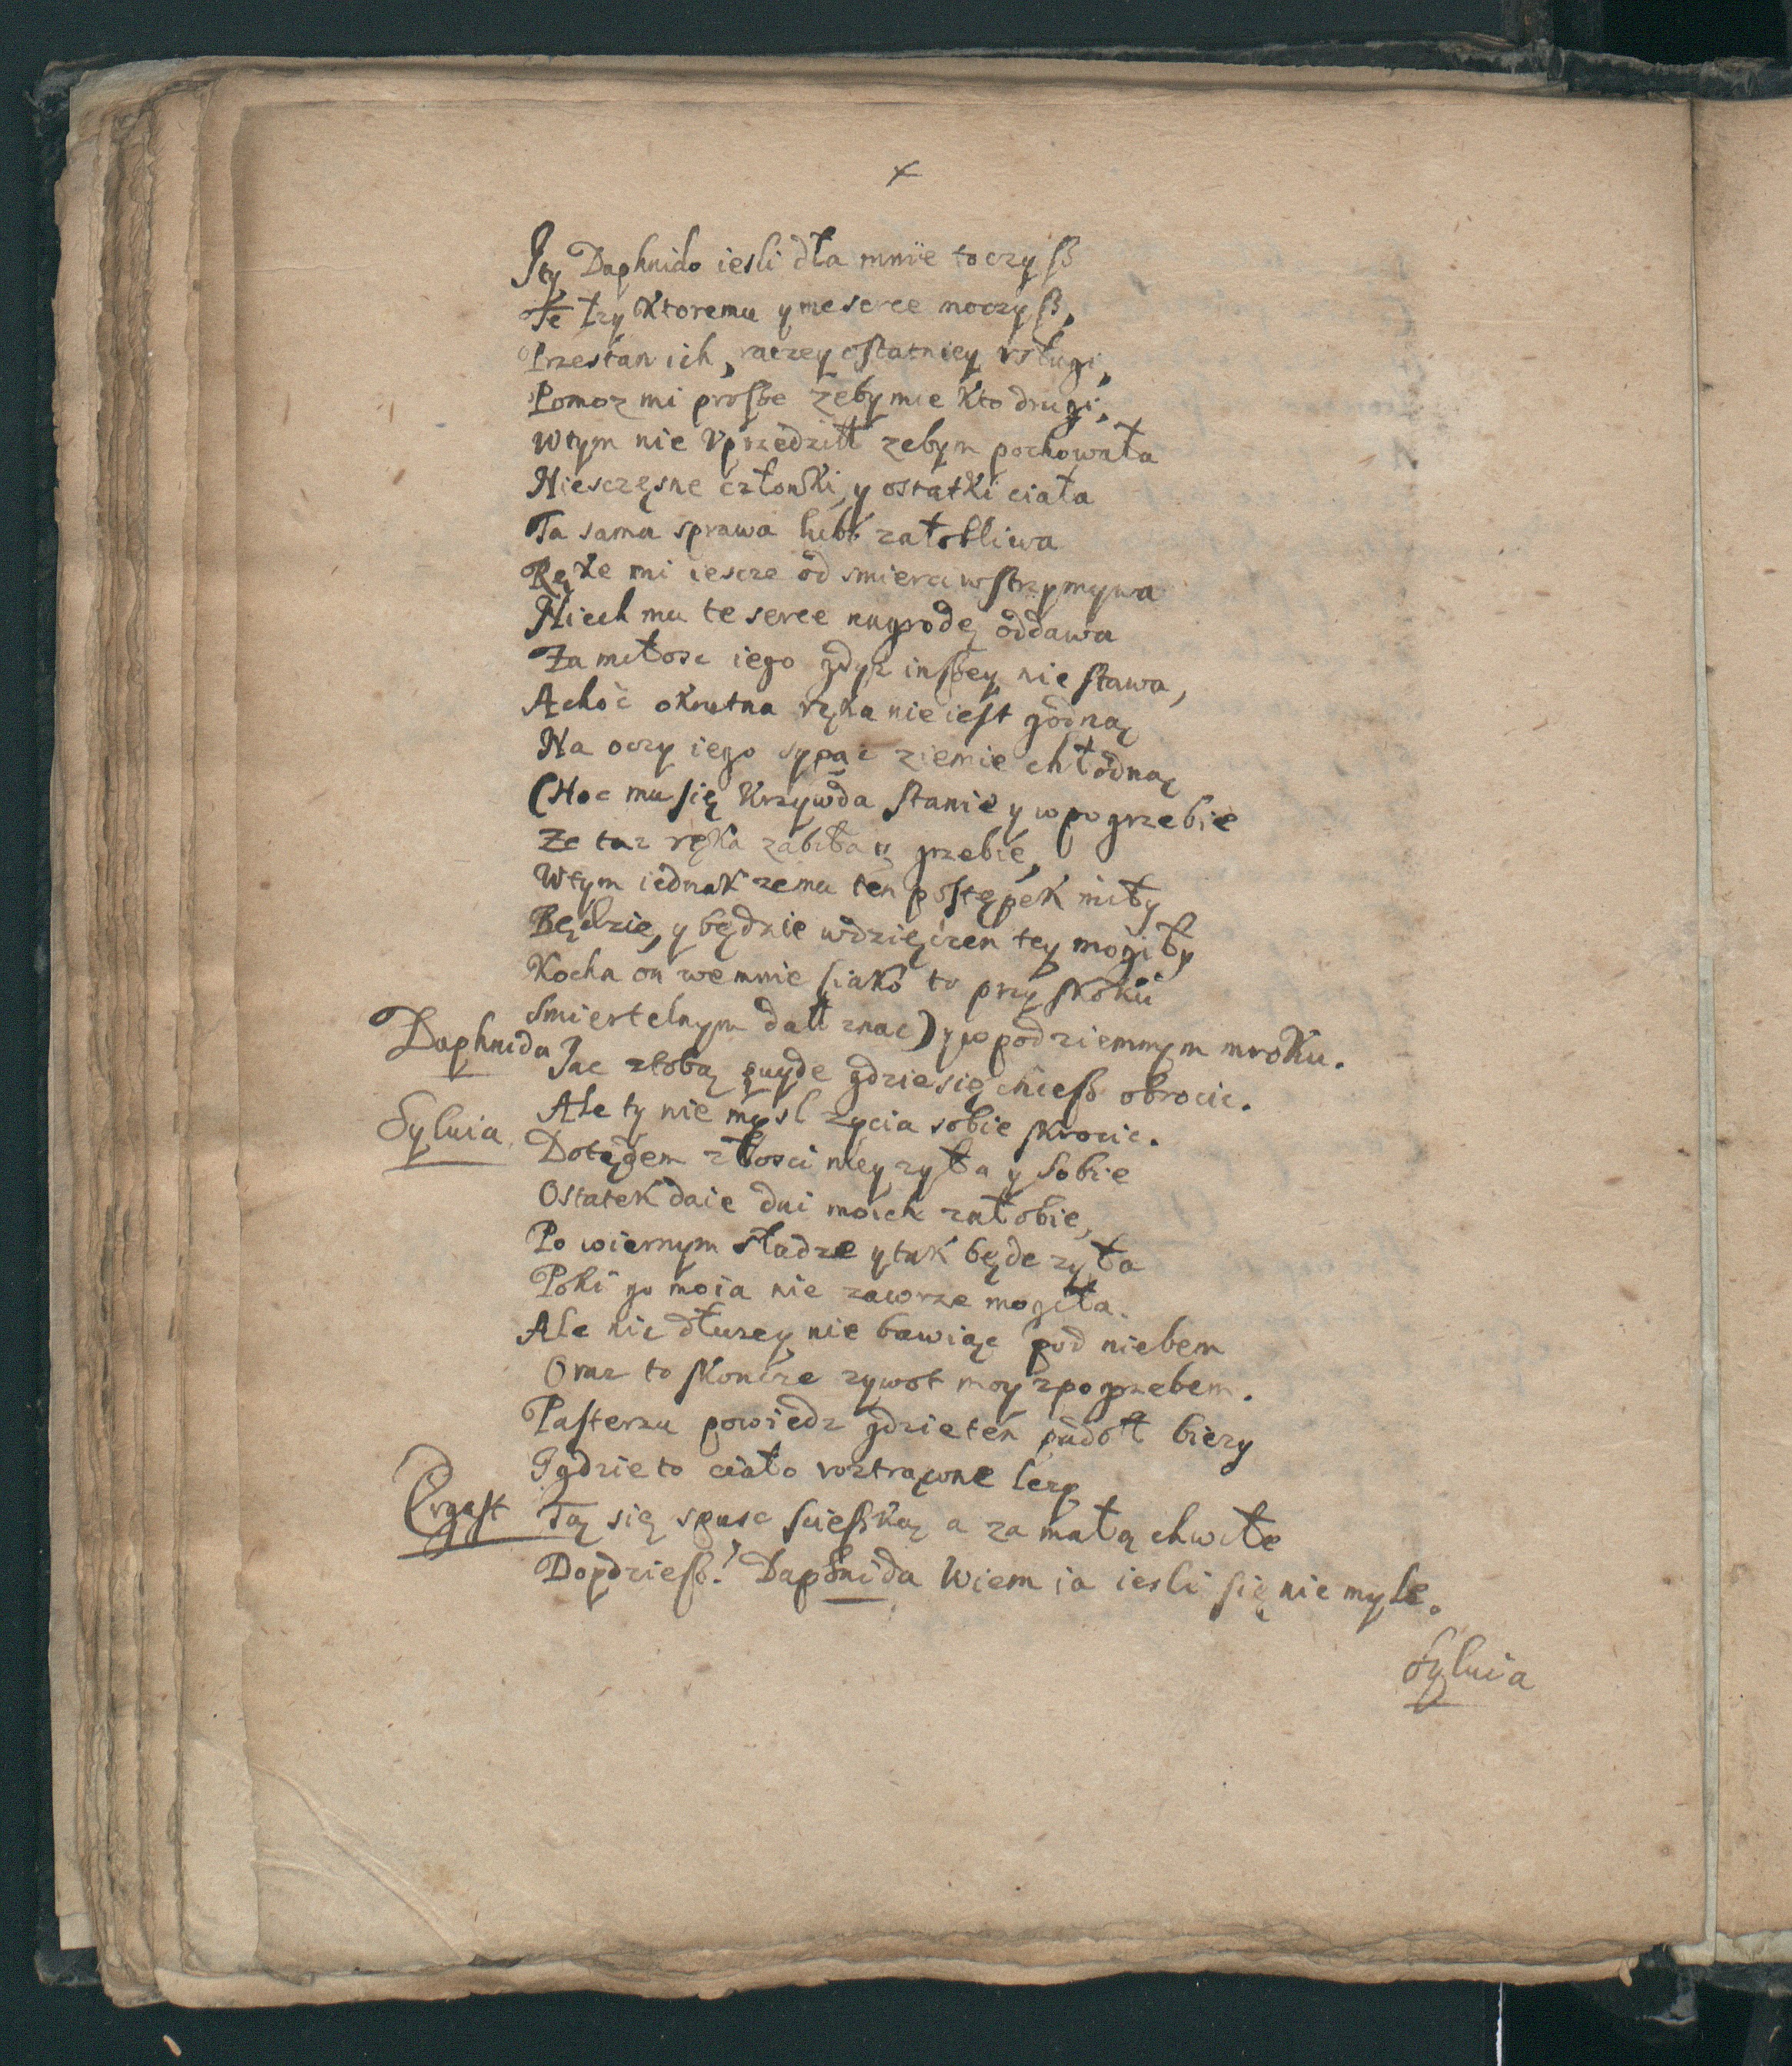 I ty Daphnido iesli dła mnie toczyß
Te łzy ktoremu y me serce moczyß,
Przestan ich, raczey ostatniey vsługi,
Pomoz mi proſße żeby mie kto drugi,
W tym nie vprzedzîł zebym pochowała
Niesczęsne członki y ostatki ciała
Ta sama sprawa lubo załobliwa
Rękę mi iescze od smierci wstrzymywa
Niech mu te serce nagrodę oddawa
Za miłosc iego gdyz inßey nie stawa,
A choć okrutna ręka nie iest godną
Na oczy iego sypac ziemie chłodną
(Hoc mu się krzywda stanie y w pogrzebie
Ze taz ręka zabiła y grzebie,
W tym iednak ze mu ten postępek miły
Będzie, y będzie wdzięczen tey mogiły
Kocha on we mnie (iako to przy skoku
Smiertelnym dał znac) y w podziemnym mroku.
Daphnida Jac z tobą puyde gdzie się chceß obrocic.
Ale ty nie mysl zycia sobie skrocic.
Sylvia Dotądem złosci mey zyła y sobie
Ostatek daie dni moich załobie,
Po wiernym słudze y tak będe zyła
Poki go moia nie zawrze mogiła.
Ale nic dłuzey nie bawiąc pod niebem
Oraz to skoncze zywot moy z pogrzebem.
Pasterzu powiedz gdzie ten padoł biezy
I gdzie to ciało roztrącone lezy
Ergast Tą się spusc scießką a za małą chwile
Doydzieß! Daphnida Wiem ia iesli się nie myle.
Sylvia